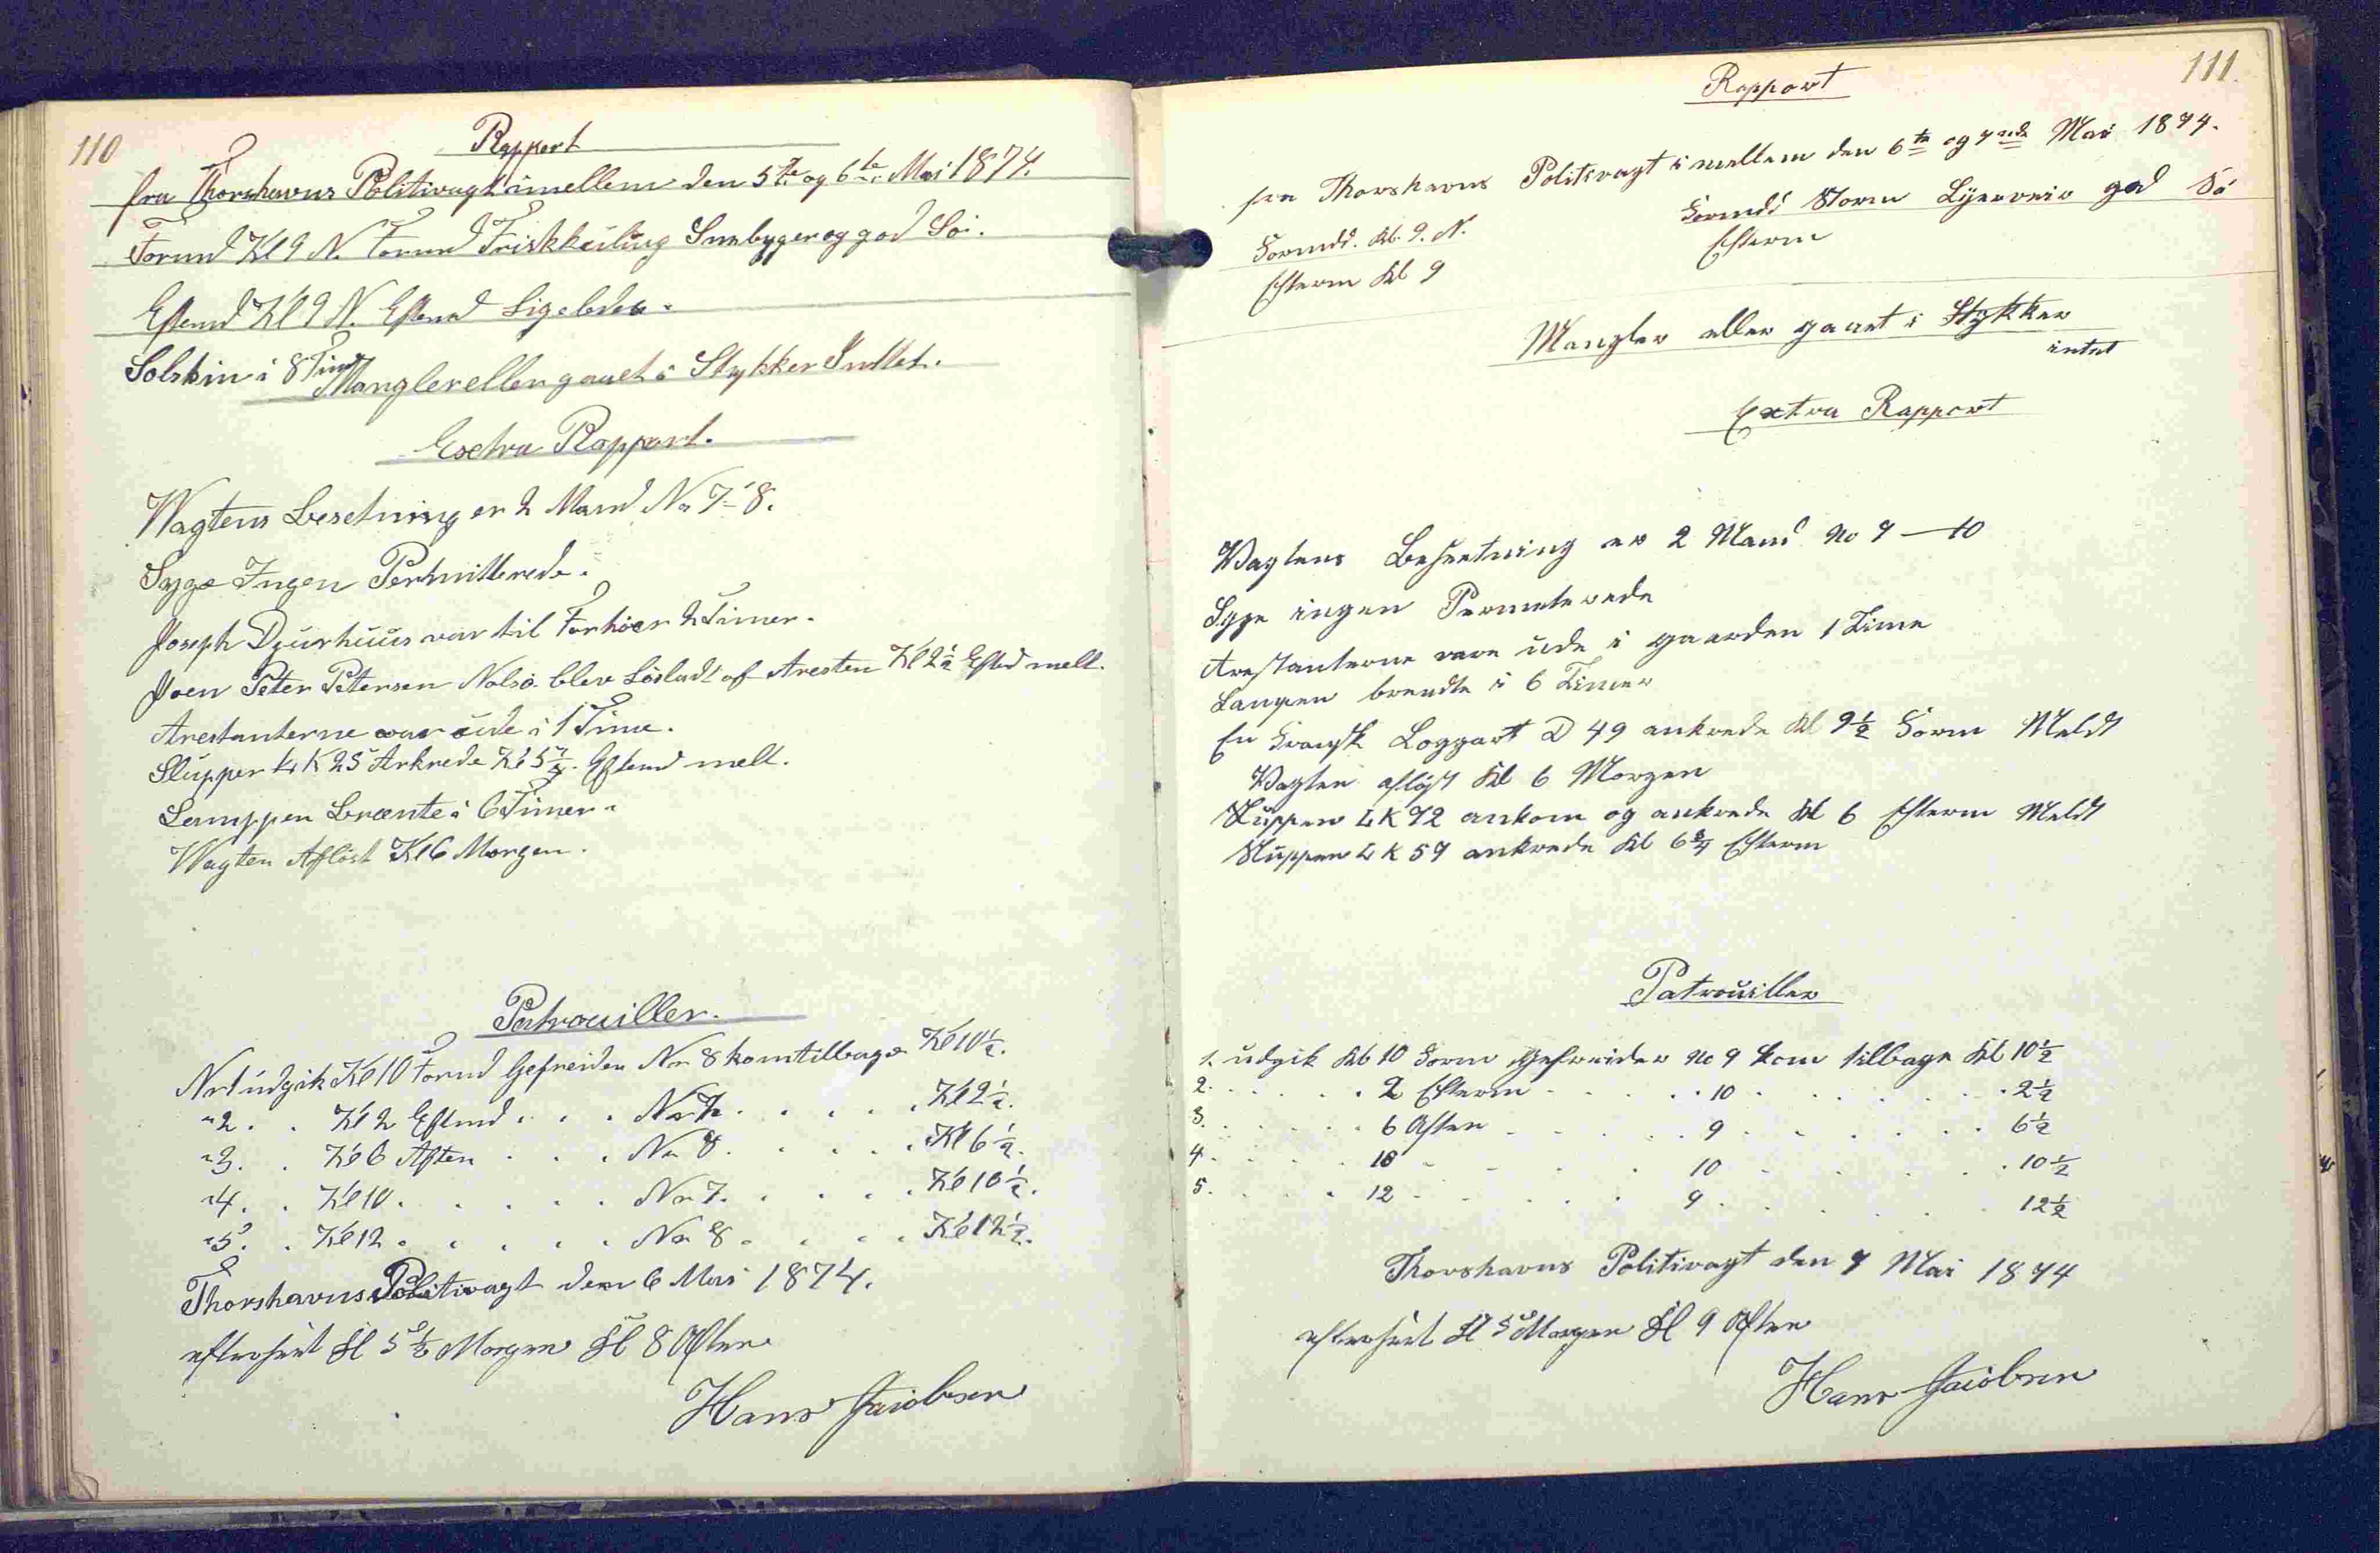 110
Rapport
fra Thorshavns Politivagt imellem den 5te og 6te Mai 1874.
Formd Kl 9 N. Formd Friskkuling Snebyger og god Söi.
Eftmd Kl 9 N. Eftmd Ligeledes.
Solskin i 8 Time
Mangler eller gaaet i Stykker Inttet.
Exstra Rapport.
Wagtens Besetning er 2 Mand No 7-8.
Syge Ingen Permitterede.
Joseph Djurhuus var til Forhöer 2 Timer.
Joen Peter Petersen Nolsö blev Lösladt of Aresten Kl 2½ Eftmd melt.
Arestanterne var ude i 1 Time.
Slupper LK 25 Ankrede Kl Eftmd melt.
Lamppen Brænte i 6 Timer.
Wagten Aflöst Kl 6 Morgen.
Patrouiller.
Nr 1 údgik Kl 10 Formd Gefreider No 8 kom tilbage Kl 10½.
"2. . Kl 2 Eftmd . . . No 7. . . . . Kl 2½.
"3. . Kl 6 Aften . . . No 8. . . . . Kl 6½.
"4. . Kl 10. . . . . . No 7. . . . . Kl 10½.
"5. . Kl 12 . . . . . . No 8 . . . . Kl 12½.
Thorshavns Politivagt den 6 Mai 1874.
efterseet Kl 5½ Morgen Kl 8 Aften
Hans Jacobsen
111.
Rapport
fra Thorshavns Politivagt i mellem den 6te og 7nde Mai 1874.
Formdd. Kl. 9. N. Formdd Storm Lyerveir god Sö
Efterm Kl 9 Efterm
Mangler eller gaaet i Stykker
intet
Extra Rapport
Vagtens Besætning er 2 Mand No 9 — 10
Syge ingen Permeterede
Arestanterne vare ude i gaarden 1 Time
Lampen brendte i 6 Timer
En Fransk Loggart D 49 ankrede Kl 9½ Form Meldt
Vagten aflöst Kl 6 Morgen
Sluppen LK 72 ankom og ankrede Kl 6 Efterm Meldt
Sluppen LK 57 ankrede Kl 6¾ Efterm
Patrouiller
1. udgik Kl 10 Form Gefreider No 9 kom tilbage Kl 10½
2. . . . . . 2 Efterm . . . . 10 . . . . . . 2½
3. . . . . . 6 Aften . . . . . 9 . . . . . . 6½
4. . . . . . 10 . . . . 10 . . . . . 10½
5. . . . . 12 . . . . . 9 . . . . . 12½
Thorshavns Politivagt den 7 Mai 1874
efterseet Kl 5 Morgen Kl 9 Aften
Hans Jacobsen